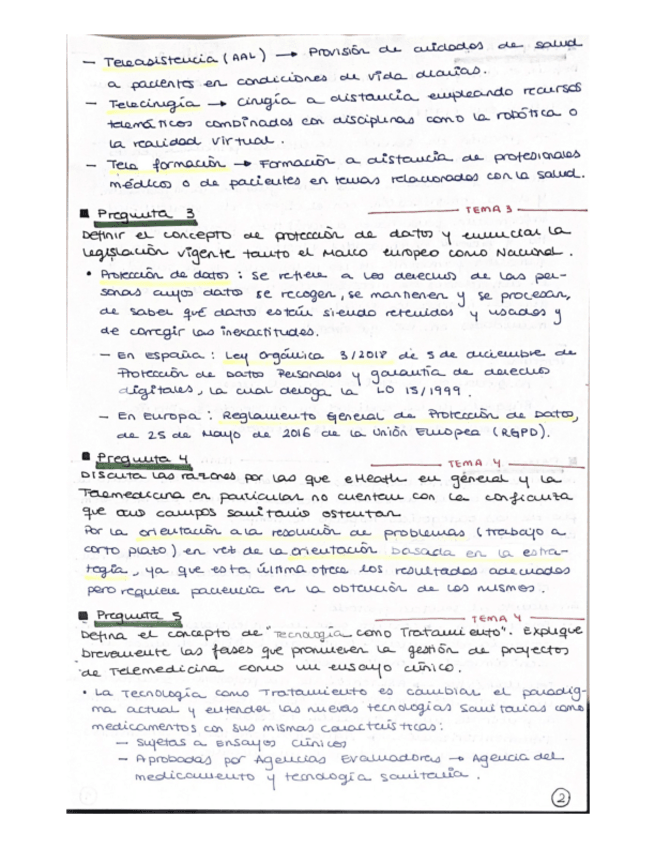 - Teleasistencia (AAL) → Provisión de cuidados de salud
a pacientes en condiciones de vida diarias.
- Telecirugía → cirugía a distancia empleando recursos
telemáticos combinados con disciplinas como la robótica o
la realidad virtual.
- Tele formación → Formación a distancia de profesionales
médicos o de pacientes en temas relacionados con la salud.
■ Pregunta 3 TEMA 3
Definir el concepto de protección de datos y enunciar la
legislación vigente tanto el Marco europeo como Nacional.
• Protección de datos: se refiere a los derechos de las per-
sonas cuyos datos se recogen, se mantienen y se procesan,
de saber qué datos están siendo retenidos y usados y
de corregir las inexactitudes.
- En España: Ley Orgánica 3/2018 de 5 de diciembre de
Protección de Datos Personales y garantía de derechos
digitales, la cual deroga la LO 15/1999.
- En Europa: Reglamento General de Protección de Datos,
de 25 de Mayo de 2016 de la Unión Europea (RGPD).
■ Pregunta 4 TEMA 4
Discuta las razones por las que eHealth en general y la
Telemedicina en particular no cuentan con la confianza
que otros campos sanitario ostentan
Por la orientación a la resolución de problemas (trabajo a
corto plazo) en vez de la orientación basada en la estra-
tegia, ya que esta última ofrece los resultados adecuados
pero requiere paciencia en la obtención de los mismos.
■ Pregunta 5 TEMA 4
Defina el concepto de "Tecnología como Tratamiento". Explique
brevemente las fases que promueven la gestión de proyectos
de Telemedicina como un ensayo clínico.
• La Tecnología como Tratamiento es cambiar el paradig-
ma actual y entender las nuevas tecnologías sanitarias como
medicamentos con sus mismas características:
- Sujetas a Ensayos Clínicos
- Aprobadas por Agencias Evaluadoras → Agencia del
medicamento y tecnología sanitaria.
2